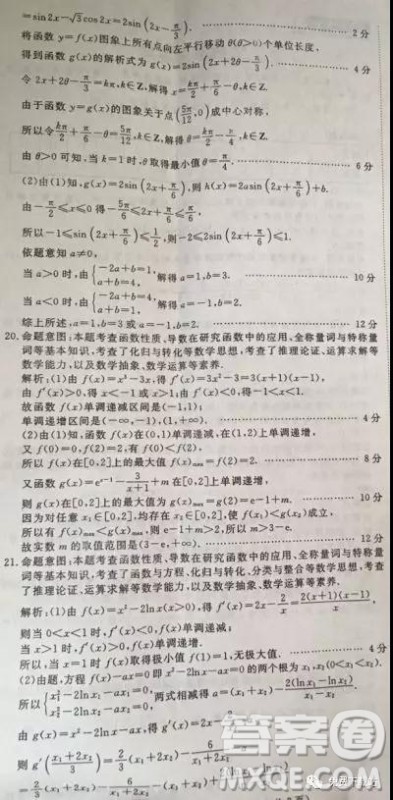 =sin2x-√3cos2x=2sin(2x-π/3). 2分
将函数 y=f(x)图象上所有点向左平行移动 θ(θ>0)个单位长度,
得到函数 g(x)的解析式为 g(x)=2sin(2x+2θ-π/3). 4分
令 2x+2θ-π/3=kπ,k∈Z,解得 x=kπ/2+π/6-θ,k∈Z.
由于函数 y=g(x)的图象关于点(5π/12,0)成中心对称,
所以令 kπ/2+π/6-θ=5π/12,k∈Z,解得 θ=kπ/2-π/4,k∈Z.
由 θ>0 可知,当 k=1 时,θ取得最小值 θ=π/4. 6分
(2)由(1)知,g(x)=2sin(2x+π/6),则 h(x)=2asin(2x+π/6)+b.
由-π/2≤x≤0 得-5π/6≤2x+π/6≤π/6,
所以-1≤sin(2x+π/6)≤1/2,则-2≤2sin(2x+π/6)≤1.
依题意知 a≠0,
当 a>0 时,由{-2a+b=1, a+b=4, 解得 a=1,b=3. 10分
当 a<0 时,由{-2a+b=4, a+b=1, 解得 a=-1,b=2.
综上所述,a=1,b=3 或 a=-1,b=2. 12分
20. 命题意图:本题考查函数性质、导数在研究函数中的应用、全称量词与特称量
词等基本知识,考查了化归与转化等数学思想,考查了推理论证、运算求解等
数学能力,以及数学抽象、数学运算等素养.
解析:(1)由 f(x)=x³-3x,得 f′(x)=3x²-3=3(x+1)(x-1),
由 f′(x)>0,得 x<-1 或 x>1;由 f′(x)<0,得-1<x<1.
故函数 f(x)单调递减区间是(-1,1);
单调递增区间是(-∞,-1),(1,+∞). 4分
(2)由(1)知,函数 f(x)在(0,1)单调递减,在(1,2)上单调递增,
又 f(0)=0,f(2)=2,有 f(0)<f(2),
所以 f(x)在[0,2]上的最大值 f(x)max=f(2)=2. 8分
又函数 g(x)=eˣ⁻¹-3/(x+1)+m 在[0,2]上单调递增,
则 g(x)在[0,2]上的最大值为 g(x)max=g(2)=e-1+m. 10分
因为对任意 x₁∈[0,2],均存在 x₂∈[0,2],使 f(x₁)<g(x₂)成立,
所以有 f(x)max<g(x)max,则 e-1+m>2,所以 m>3-e.
故实数 m 的取值范围是(3-e,+∞). 12分
21. 命题意图:本题考查函数性质、导数在研究函数中的应用、全称量词与特称量
词等基本知识,考查了函数与方程、化归与转化、分类与整合等数学思想,考查
了推理论证、运算求解等数学能力,以及数学抽象、数学运算等素养.
解析:(1)由 f(x)=x²-2lnx(x>0),得 f′(x)=2x-2/x=2(x+1)(x-1)/x,
则当 0<x<1 时,f′(x)<0,f(x)单调递减;
当 x>1 时,f′(x)>0,f(x)单调递增.
所以,当 x=1 时 f(x)取得极小值 f(1)=1,无极大值. 4分
(2)由题,方程 f(x)-ax=0 即 x²-2lnx-ax=0 的两个根为 x₁,x₂(0<x₁<x₂).
所以{x₁²-2lnx₁-ax₁=0, x₂²-2lnx₂-ax₂=0, 两式相减得 a=(x₁+x₂)-2(lnx₁-lnx₂)/(x₁-x₂).
由 g(x)=x²-2lnx-ax=0,得 g′(x)=2x-
则 g′((x₁+2x₂)/3)=2/3(x₁+2x₂)-6/(x₁+2x₂)-
答案圈
MXQE.COM